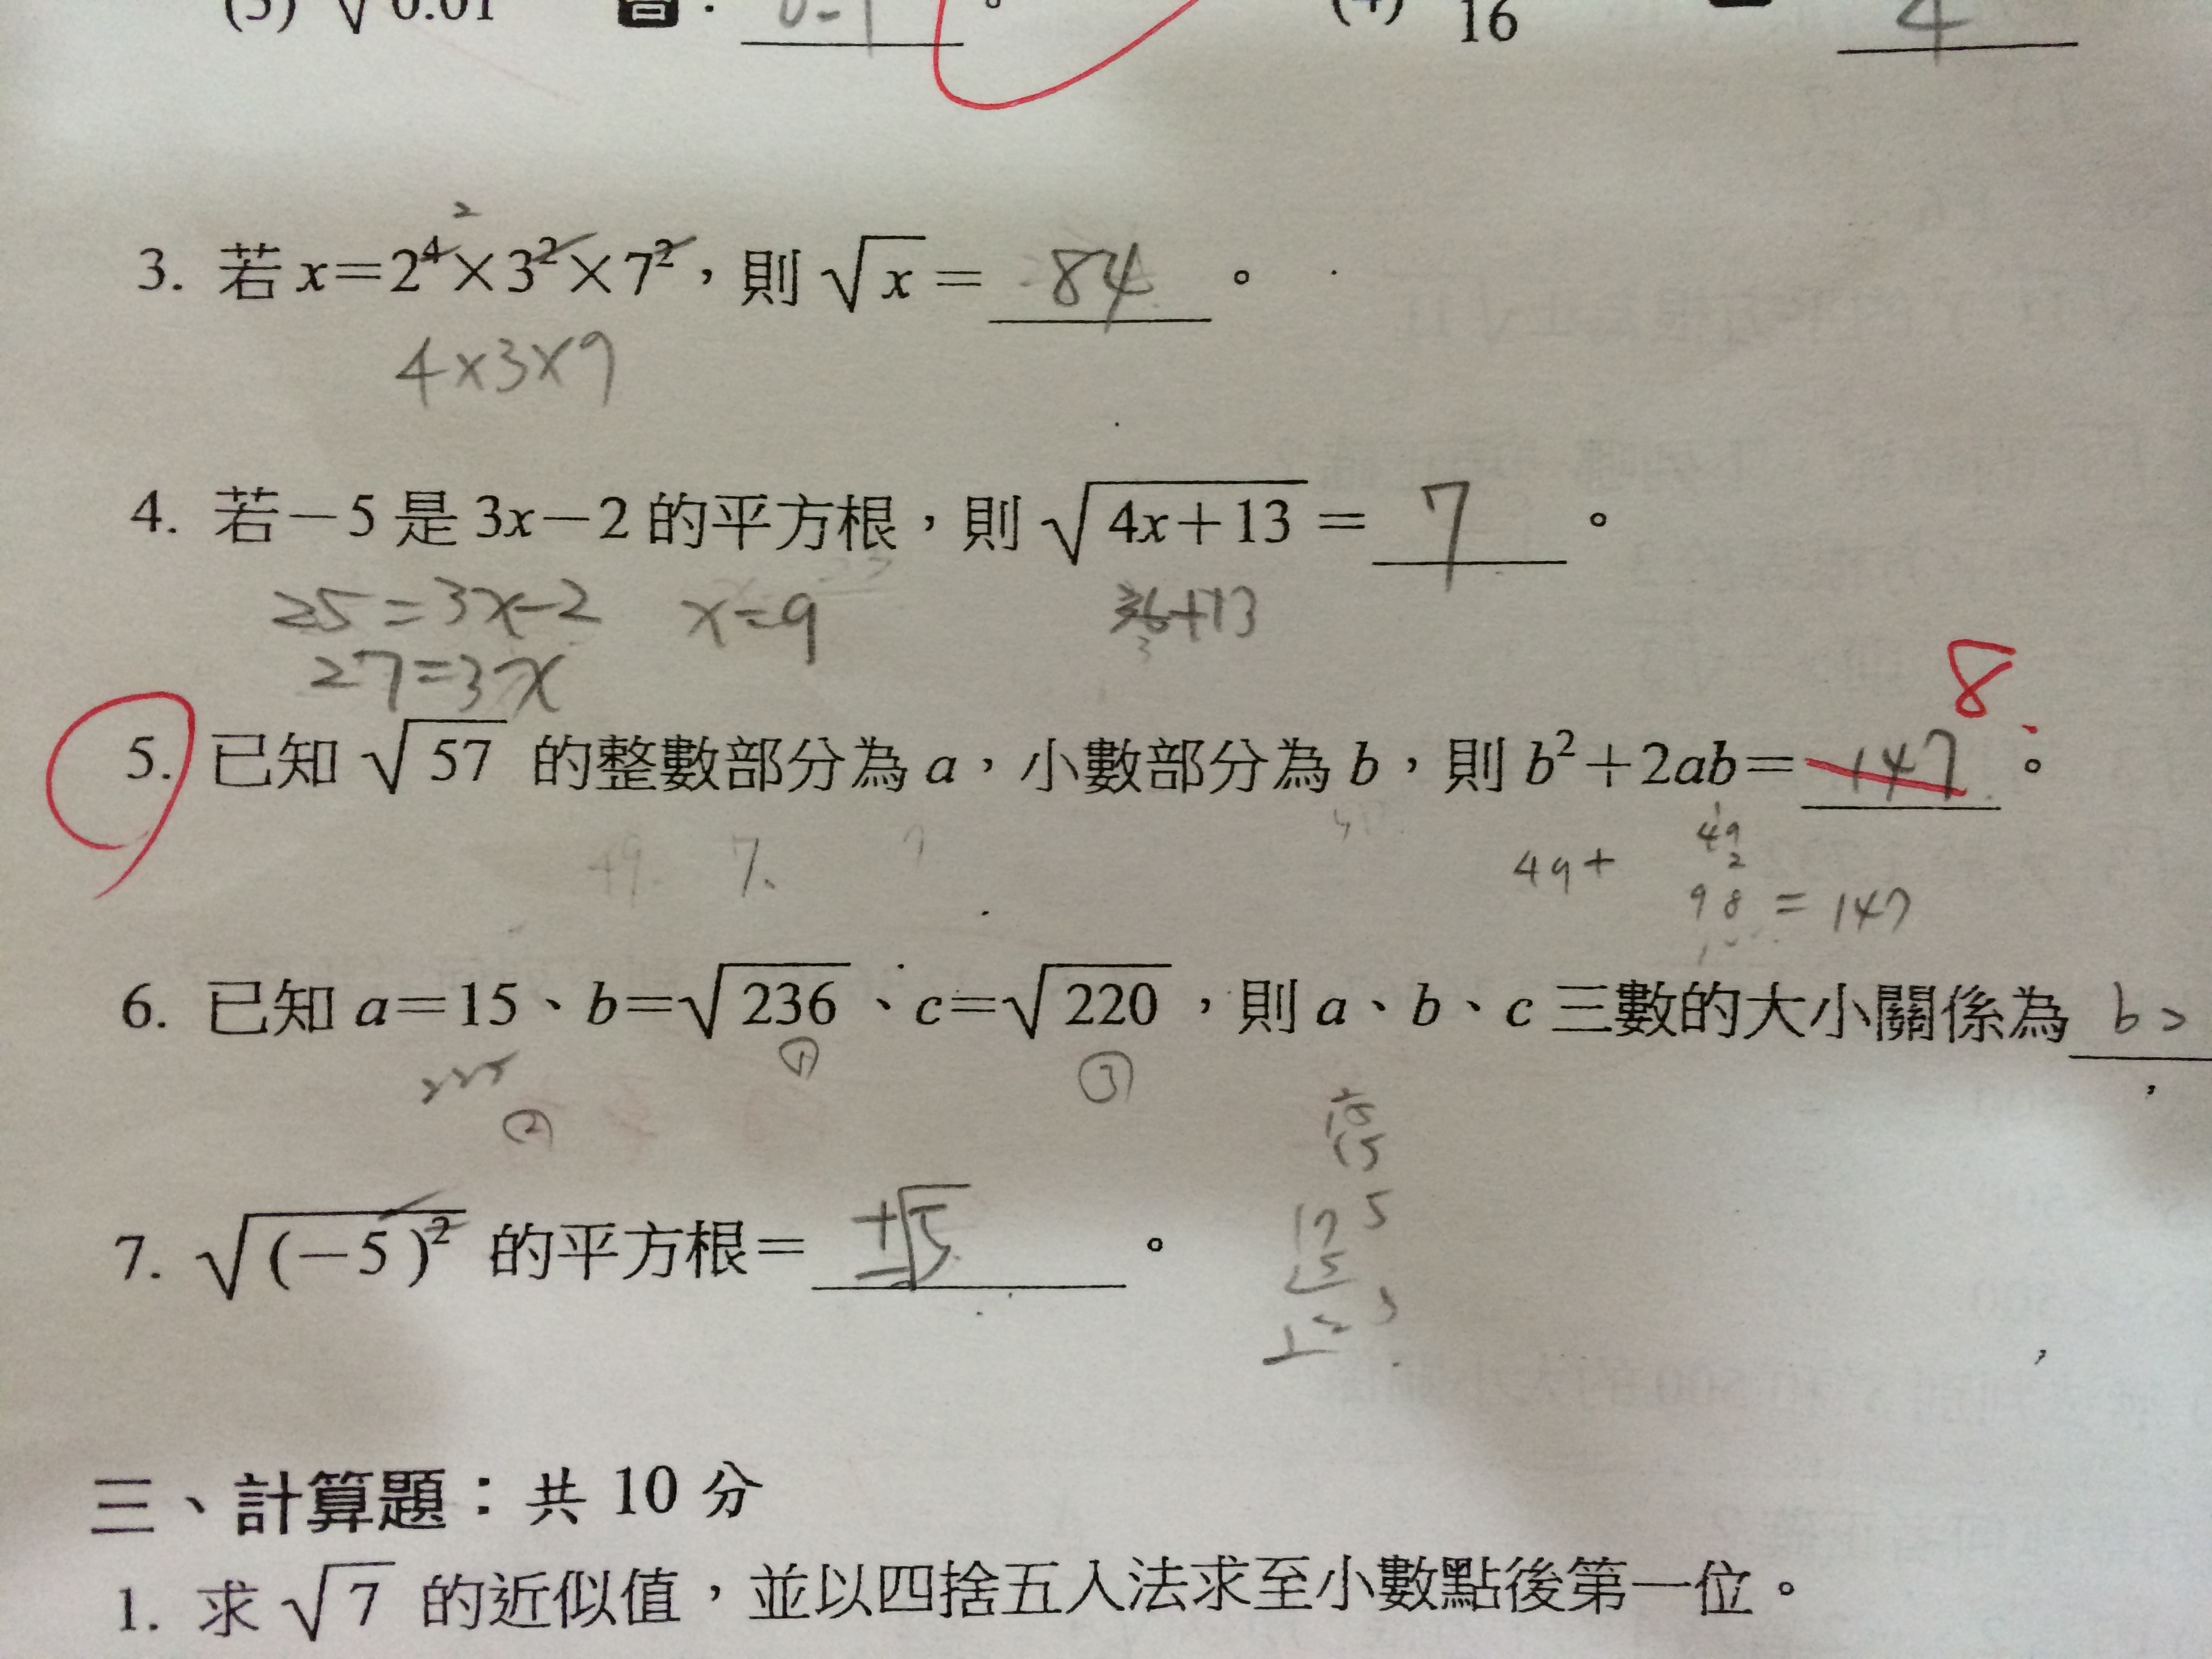 (3) √0.01 答: 0.1 。 (4) 16 4
2
3. 若 x=2⁴×3²×7²,則 √x = 84 。
4×3×9
4. 若−5 是 3x−2 的平方根,則 √4x+13 = 7 。
25=3x-2 x=9 36+13
27=3x
8
5. 已知 √57 的整數部分為 a,小數部分為 b,則 b²+2ab= 147 。
49 7. 49+ 49
2
98 = 147
6. 已知 a=15、b=√236、c=√220,則 a、b、c 三數的大小關係為 b>
225 ② ① ③
15
7. √(−5)² 的平方根= ±√5 。
三、計算題:共 10 分
1. 求 √7 的近似值,並以四捨五入法求至小數點後第一位。